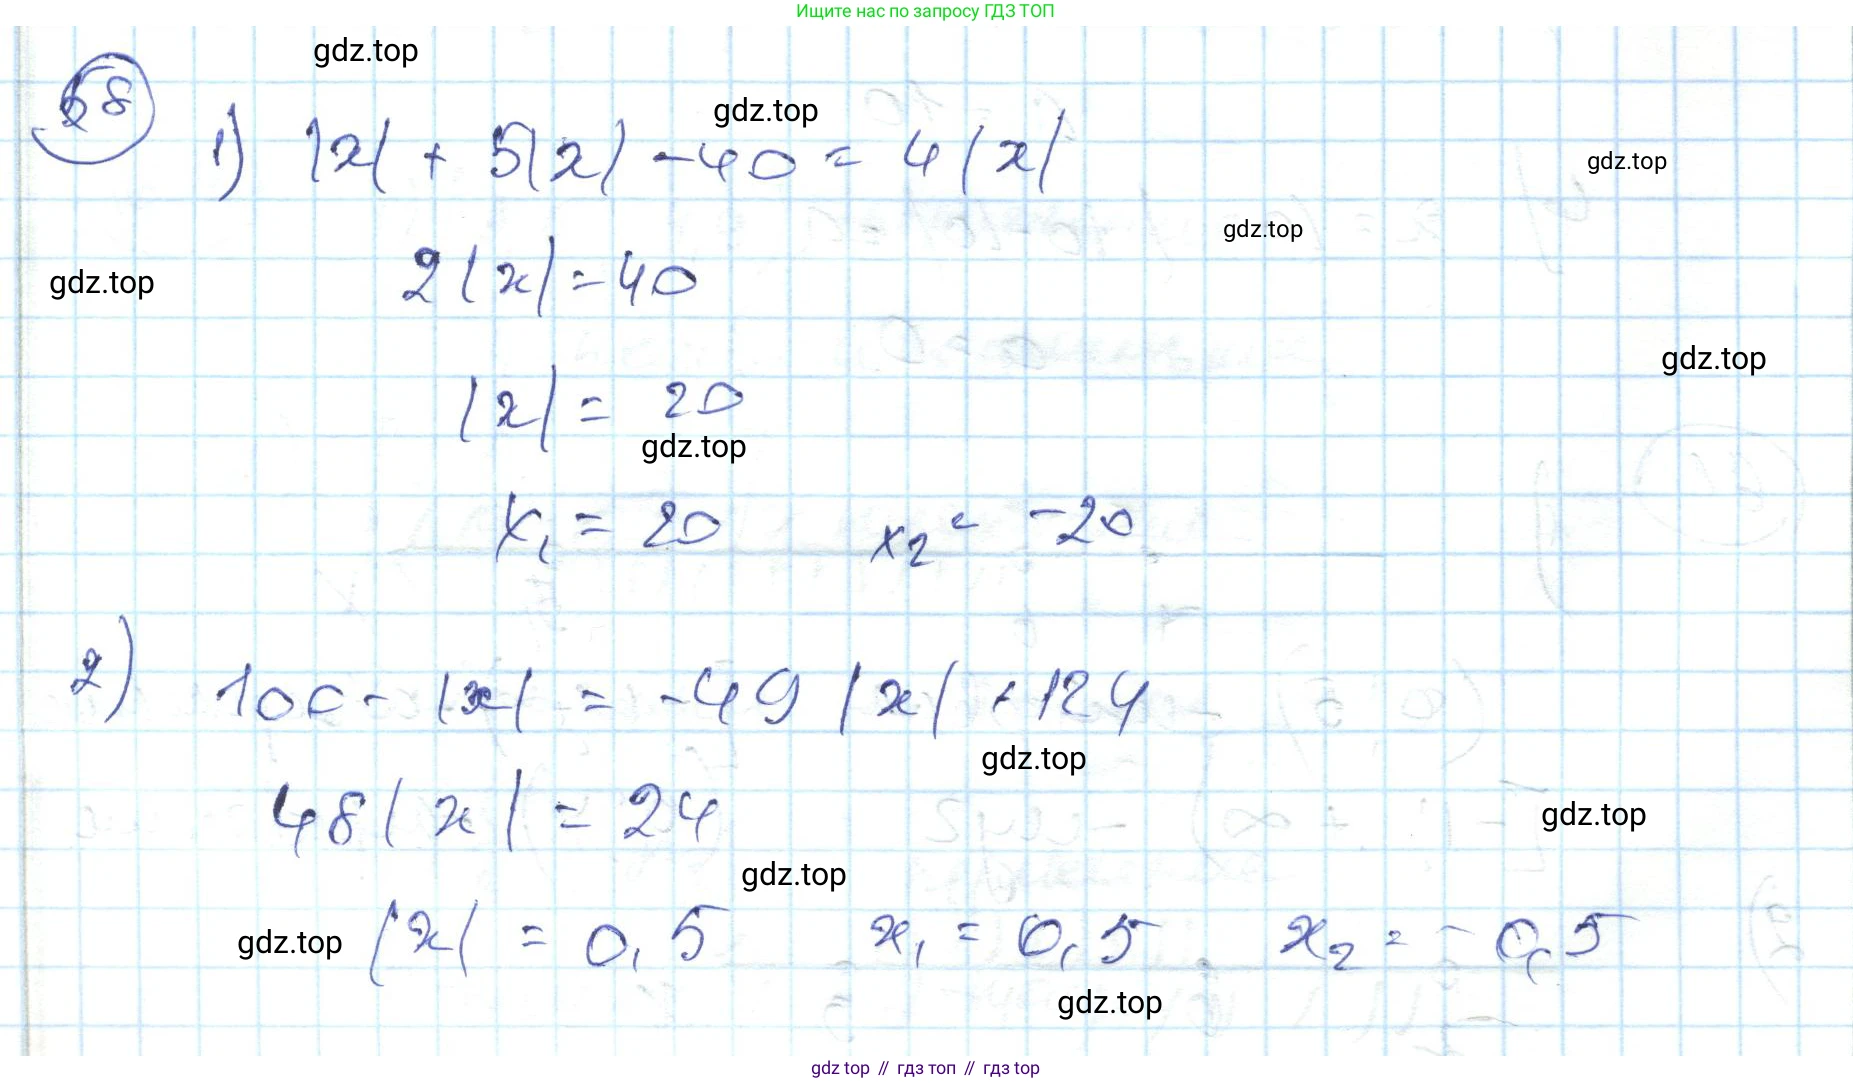 Ищите нас по запросу ГДЗ ТОП
gdz.top
68
gdz.top
1) |x| + 5|x| - 40 = 4|x|
gdz.top
gdz.top
gdz.top
2|x| = 40
gdz.top
|x| = 20
gdz.top
x₁ = 20 x₂ = -20
2) 100 - |x| = -49|x| + 124
gdz.top
48|x| = 24
gdz.top
gdz.top
gdz.top
|x| = 0,5 x₁ = 0,5 x₂ = -0,5
gdz.top
gdz top // гдз топ // гдз top